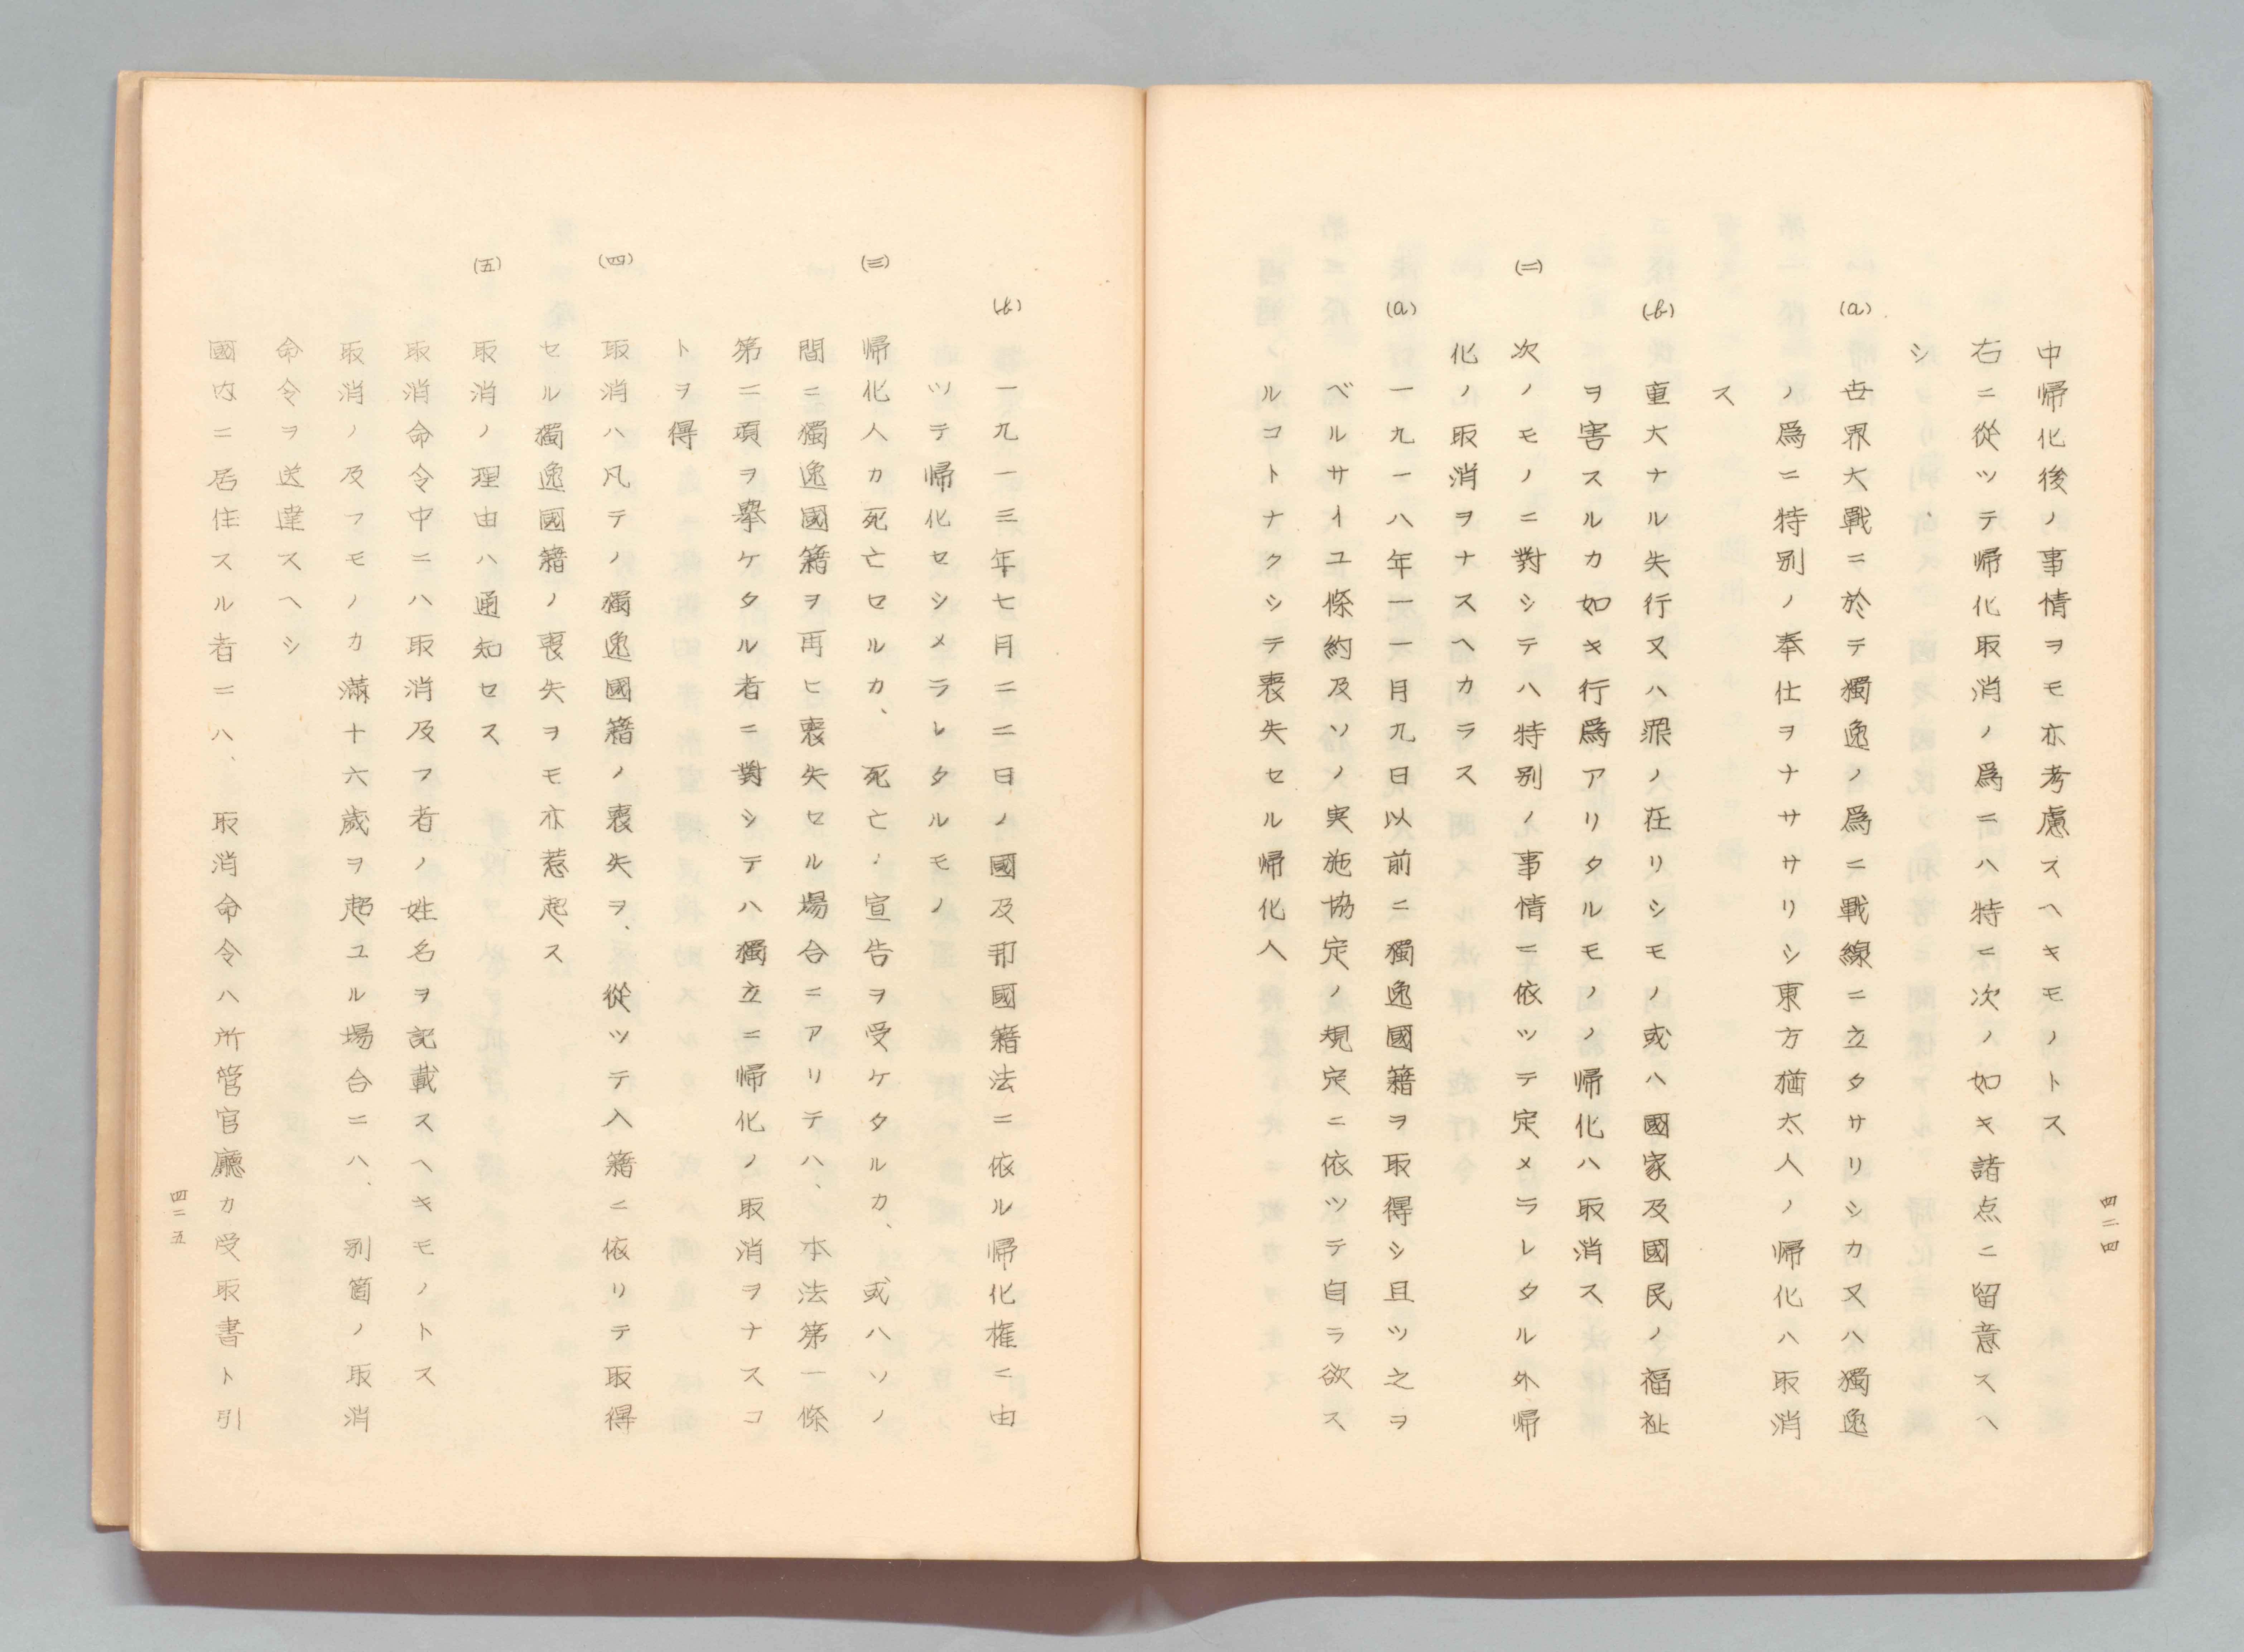 四二四
中帰化後ノ事情ヲモ亦考慮スヘキモノトス
右ニ從ツテ帰化取消ノ爲ニハ特ニ次ノ如キ諸点ニ留意スヘ
シ
(a) 世界大戰ニ於テ獨逸ノ爲ニ戰線ニ立タサリシカ又ハ獨逸
ノ爲ニ特別ノ奉仕ヲナササリシ東方猶太人ノ帰化ハ取消
ス
(b) 重大ナル失行又ハ罪ノ在リシモノ或ハ國家及國民ノ福祉
ヲ害スルカ如キ行爲アリタルモノノ帰化ハ取消ス
(二) 次ノモノニ對シテハ特別ノ事情ニ依ツテ定メラレタル外帰
化ノ取消ヲナスヘカラス
(a) 一九一八年一一月九日以前ニ獨逸國籍ヲ取得シ且ツ之ヲ
ベルサイユ條約及ソノ実施協定ノ規定ニ依ツテ自ラ欲ス
ルコトナクシテ喪失セル帰化人
(b) 一九一三年七月二二日ノ國及邦國籍法ニ依ル帰化権ニ由
ツテ帰化セシメラレタルモノ
(三) 帰化人カ死亡セルカ、死亡ノ宣告ヲ受ケタルカ、或ハソノ
間ニ獨逸國籍ヲ再ヒ喪失セル場合ニアリテハ、本法第一條
第二項ヲ擧ケタル者ニ對シテハ獨立ニ帰化ノ取消ヲナスコ
トヲ得
(四) 取消ハ凡テノ獨逸國籍ノ喪失ヲ、從ツテ入籍ニ依リテ取得
セル獨逸國籍ノ喪失ヲモ亦惹起ス
(五) 取消ノ理由ハ通知セス
取消命令中ニハ取消及フ者ノ姓名ヲ記載スヘキモノトス
取消ノ及フモノカ滿十六歲ヲ超ユル場合ニハ、別箇ノ取消
命令ヲ送達スヘシ
國内ニ居住スル者ニハ、取消命令ハ所管官廳カ受取書ト引
四二五